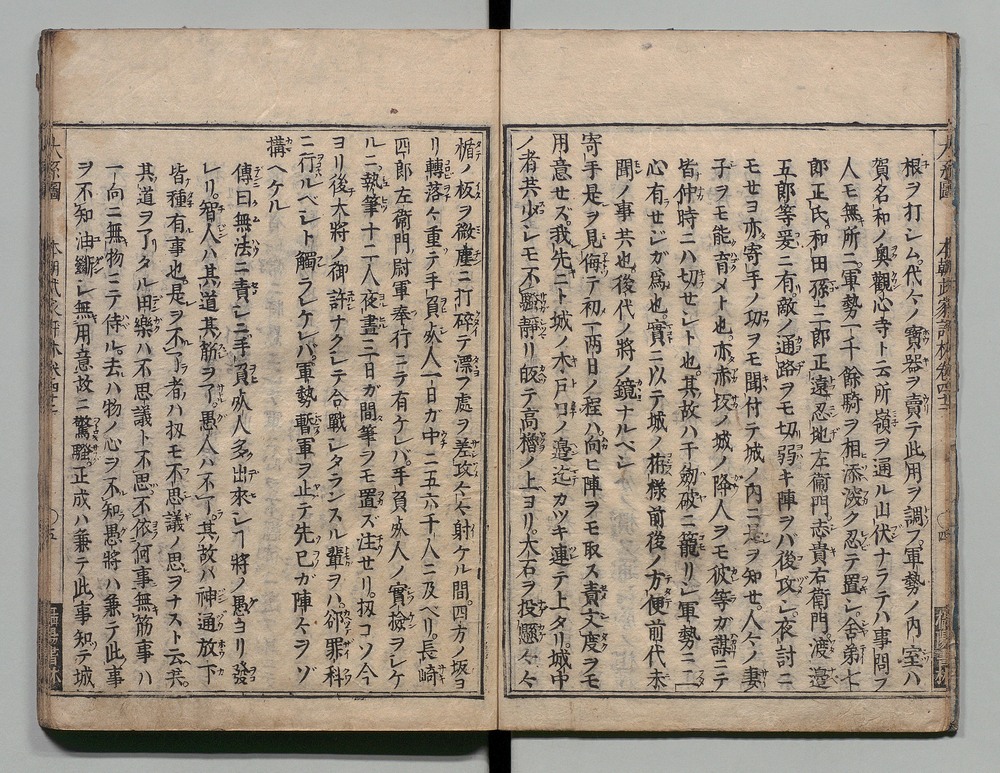 根ヲ打シム。代々ノ寳器ヲ責テ此用ヲ調フ。軍勢ノ内室ハ
賀名和ノ奥觀心寺ト云所嶺ヲ通ル山伏ナラテハ事問フ
人モ無所ニ軍勢一千餘騎ヲ相添深ク忍テ置シ。舎弟七
郎正氏。和田孫三郎正遠。忍地左衞門。志貴右衞門。渡邉
五郎等爰ニ有。敵ノ通路ヲモ切弱キ陣ヲバ後攻シ夜討ニ
モセヨ。亦寄手ノ功ヲモ聞付テ城ノ内ニ是ヲ知セ。人々ノ妻
子ヲモ能育メト也。亦赤坂ノ城ノ降人ヲモ彼等ガ謀ニテ
皆仲時ニハ切せシト也。其故ハ千劔破ニ籠リシ軍勢ニ二
心有せジガ爲也。實ニ以テ城ノ拵様前後ノ方便前代未
聞ノ事共也。後代ノ將ノ鏡ナルベシ
寄手是ヲ見侮テ初一兩日ノ程ハ向ヒ陣ヲモ取ス責支度ヲモ
用意せズ。我先ニト城ノ木戸口ノ邉迄カツキ連テ上タリ。城中
ノ者共少シモ不騒靜リ皈テ高櫓ノ上ヨリ。大石ヲ投懸々々
楯ノ板ヲ微塵ニ打碎テ漂フ處ヲ差攻々々射ケル間。四方ノ坂ヨ
リ轉落々重テ手負死人一日ガ中ニ五六千人ニ及ベリ。長﨑
四郎左衞門ノ尉軍奉行ニテ有ケレバ。手負死人ノ實撿ヲシケ
ルニ。執筆十二人夜晝三日ガ間筆ヲモ置ズ注せリ。扨コソ今
ヨリ後大將ノ御許ナクシテ合戰シタランスル輩ヲハ。卻罪科
ニ行ルベシト觸ラレケレバ。軍勢暫軍ヲ止テ先己ガ陣々ヲゾ
構ヘケル
傳曰無法ニ責シニ手負死人多出來シヿ將ノ愚ヨリ發
レリ。智人ハ其道其筋ヲ了。愚人ハ不了。其故ハ神通放下
皆種有事也。是ヲ不了者ハ扨モ不思議ノ思ヲナスト云共。
其道ヲ了タル田樂ハ不思議ト不思。不依何事無筋事ハ
一向ニ無物ニテ侍ル。去ハ物ノ心ヲ不知愚將ハ兼テ此事
ヲ不知油斷シ無用意故ニ驚騒。正成ハ兼テ此事知テ城